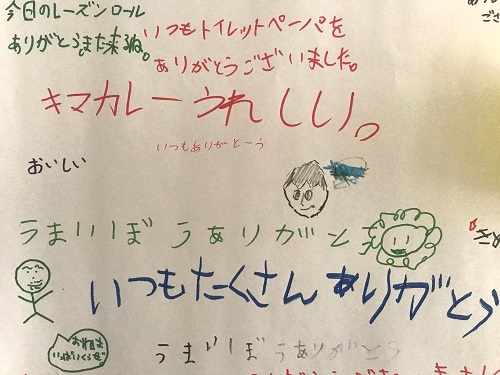 今日のレーズンロール
ありがとう。また来るね。
いつもトイレットペーパを
ありがとうございました。
キマカレーうれしい。
いつもありがとーう
おいしい
うまいぼうありがとう
いつもたくさんありがとう
うまいぼうありがとう